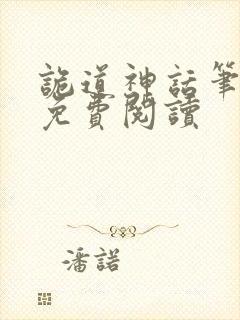 詭道神話筆
免費閱讀
潘諾